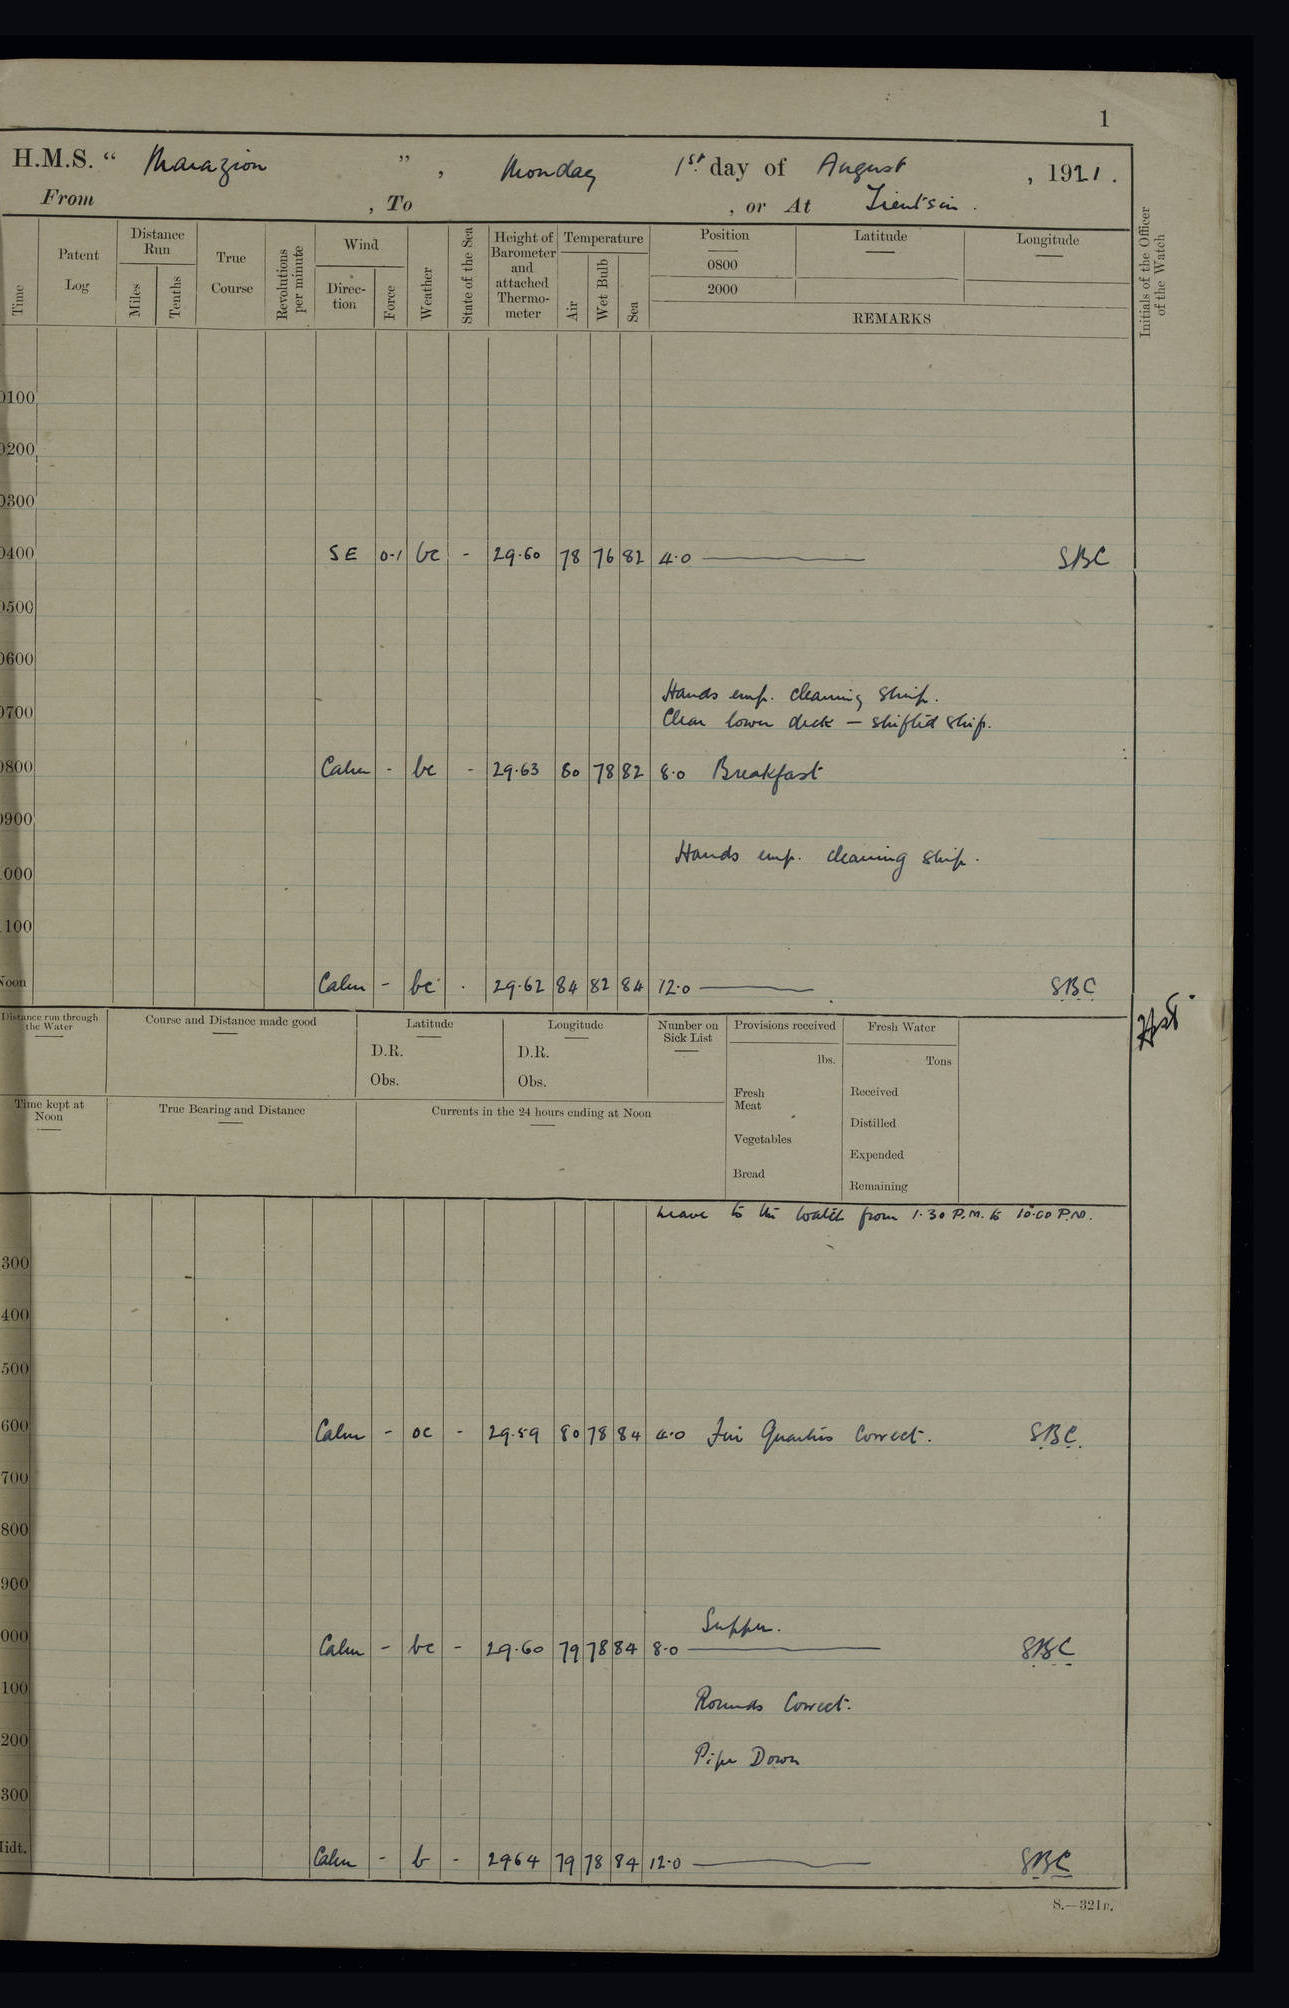 1
H.M.S. “ Marazion ” , Monday 1st day of August , 1921.
From , To , or At Tientsin.
Time
Patent Log
Distance Run
Miles
Tenths
True Course
Revolutions per minute
Wind
Direc-tion
Force
Weather
State of the Sea
Height of Barometer and attached Thermo-meter
Temperature
Air
Wet Bulb
Sea
Position
0800
2000
Latitude
Longitude
REMARKS
Initials of the Officer of the Watch
0100
0200
0300
0400 SE 0-1 bc - 29.60 78 76 82 4.0 SBC
0500
0600
Hands emp. cleaning ship.
0700 Clear lower deck — shifted ship.
0800 Calm - bc - 29.63 80 78 82 8.0 Breakfast
0900
Hands emp. cleaning ship.
000
100
Noon Calm - bc . 29.62 84 82 84 12.0 SBC
Distance run through the Water
Course and Distance made good
Latitude
D.R.
Obs.
Longitude
D.R.
Obs.
Number on Sick List
Provisions received
lbs.
Fresh Meat
Vegetables
Bread
Fresh Water
Tons
Received
Distilled
Expended
Remaining
Time kept at Noon
True Bearing and Distance
Currents in the 24 hours ending at Noon
Leave to the watch from 1.30 P.M. to 10.00 P.M.
300
400
500
600 Calm - oc - 29.59 80 78 84 4.0 Fire Quarters Correct. SBC.
700
800
900
Supper.
000 Calm - bc - 29.60 79 78 84 8.0 SBC
100 Rounds Correct.
200 Pipe Down
300
Midt. Calm - b - 2964 79 78 84 12.0 SBC
S.—321B.